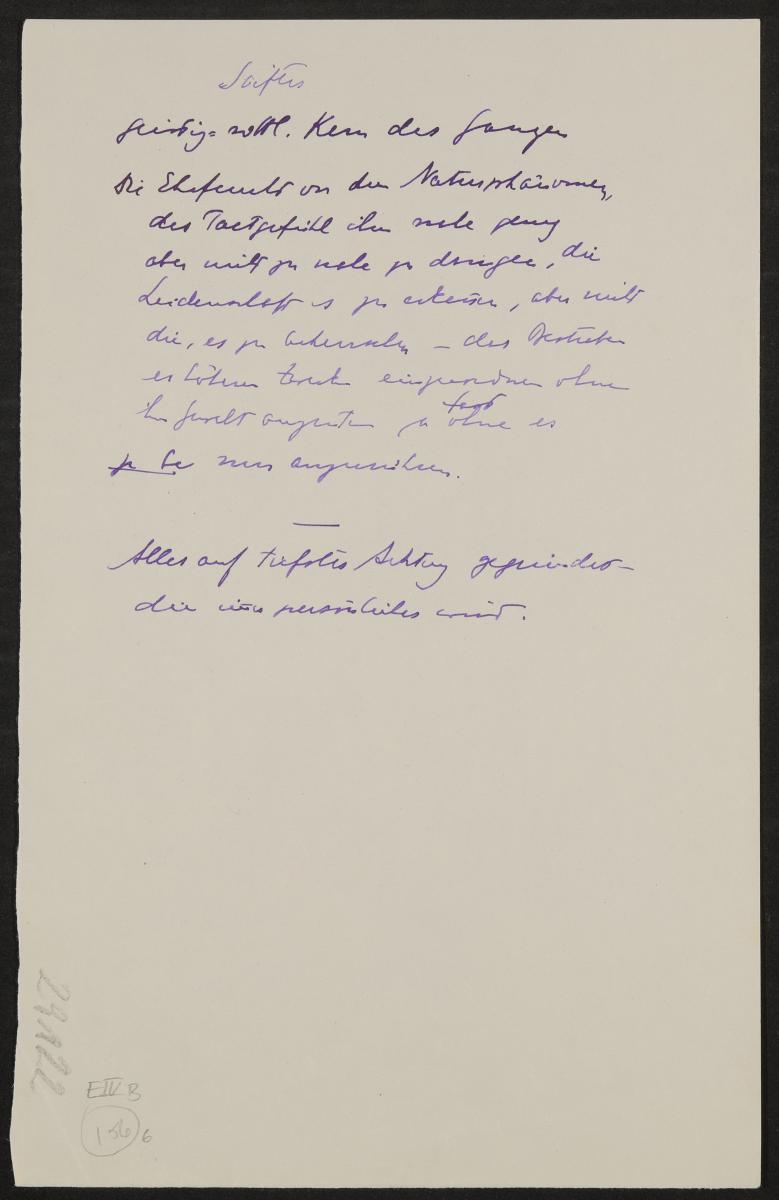 Stifter
geistig= sittl. Kern des Ganzen
Die Ehrfurcht vor den Naturphänomen,
des Tactgefühl ihm nahe genug
aber nicht zu nahe zu dringen, die
Leidenschaft es zu erkennen, aber nicht
die, es zu beherrschen – das Bestreben
es höheren Zwecken einzuordnen ohne
ihm Gewalt anzutun ja ohne es
zu be nur anzurühren.
Alles auf tiefstes Achtung gegründet –
die eine persönliches wird.
29.122
E IV B
156 6